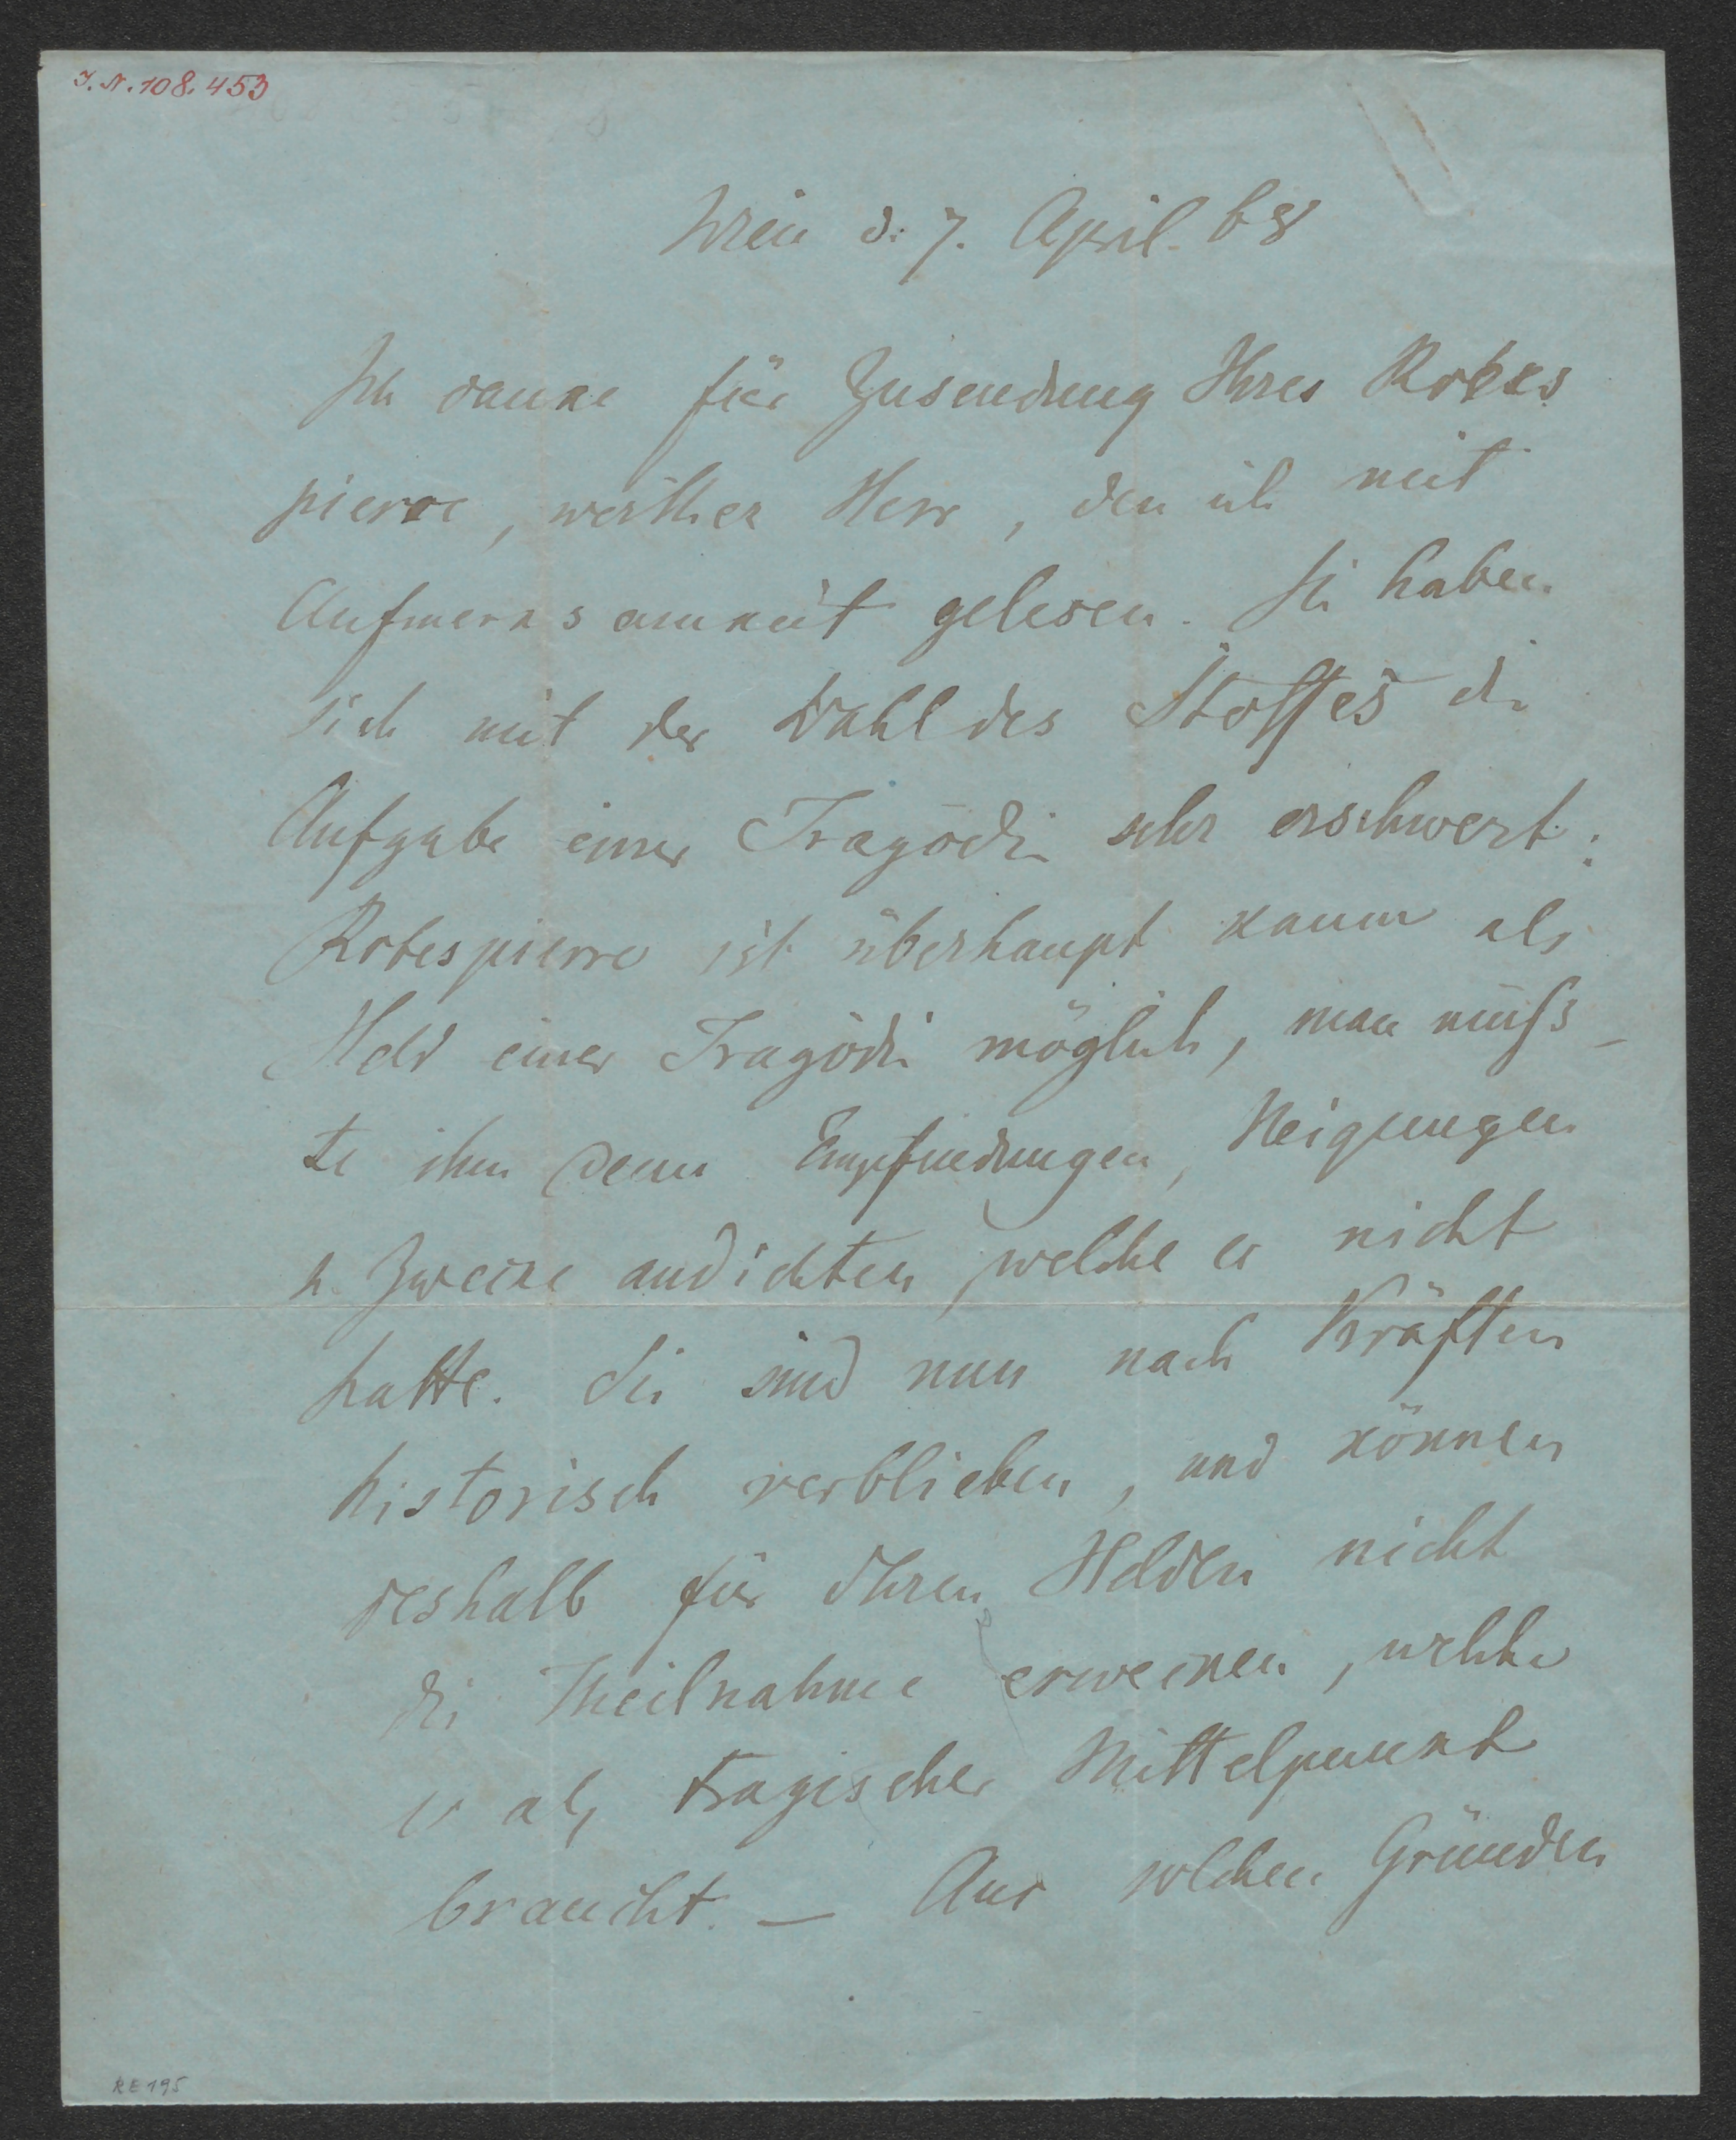 I. N. 108.453
Wien d. 7. April. 68
Ich danke für Zusendung Ihres Robes
pierre, werther Herr, den ich mit
Aufmerksamkeit gelesen. Sie haben
sich mit der Wahl des Stoffes die
Aufgabe einer Tragödie sehr erschwert:
Robespierre ist überhaupt kaum als
Held einer Tragödie möglich, man müß-
te ihm denn Empfindungen, Neigungen
u. Zwecke andichten, welche er nicht
hatte. Sie sind nun nach Kräften
historisch verblieben, und können
deshalb für Ihren Helden nicht
die Theilnahme erwecken, welche
er als tragischer Mittelpunkt
braucht. — Aus solchen Gründen
RE 195